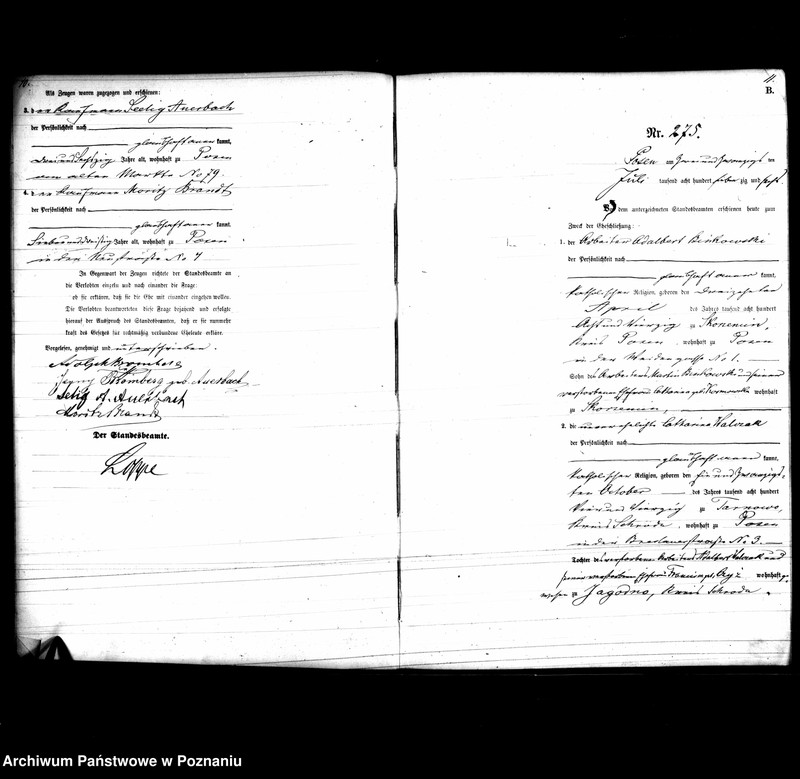 Als Zeugen waren zugezogen und erschienen:
3. der Kaufmann Selig Auerbach
der Persönlichkeit nach
glaubhaft kannt,
Jahre alt, wohnhaft zu Posen
am alten Markte No 79.
4. der Kaufmann Moritz Brandt
der Persönlichkeit nach
glaubhaft kannt,
Siebenunddreißig Jahre alt, wohnhaft zu Posen
in der No 4
In Gegenwart der Zeugen richtete der Standesbeamte an
die Verlobten einzeln und nach einander die Frage:
ob sie erklären, daß sie die Ehe mit einander eingehen wollen.
Die Verlobten beantworteten diese Frage bejahend und erfolgte
hierauf der Ausspruch des Standesbeamten, daß er sie nunmehr
kraft des Gesetzes für rechtmäßig verbundene Eheleute erkläre.
Vorgelesen, genehmigt und unterschrieben.
Bromberg
Bromberg geb Auerbach
Selig A. Auerbach
Moritz Brandt
Der Standesbeamte.
11.
B.
Nr. 275.
Posen am zwei und zwanzigsten
Juli tausend acht hundert sieben zig und sechs.
Vor dem unterzeichneten Standesbeamten erschienen heute zum
Zweck der Eheschließung:
1. der Arbeiter Adalbert Binkowski
der Persönlichkeit nach
glaubhaft kannt,
katholischer Religion, geboren den dreizehnten
April des Jahres tausend acht hundert
Acht und Vierzig zu
Kreis Posen, wohnhaft zu Posen
in der Weidengasse No 1.
Sohn des Arbeiters Martin Binkowski und seiner
verstorbenen Ehefrau Catharina geb. wohnhaft
zu
2. die unverehelichte Catharina Walczak
der Persönlichkeit nach
glaubhaft kannt,
katholischer Religion, geboren den Ein und zwanzigs-
ten October des Jahres tausend acht hundert
Vier und Vierzig zu Tarnowo,
Kreis Schroda, wohnhaft zu Posen
in der Breslauerstraße No 3.
Tochter des verstorbenen Arbeiters Adalbert Walczak und
seiner verstorbenen Ehefrau wohnhaft ge-
wesen zu Jagodno, Kreis Schroda.
Archiwum Państwowe w Poznaniu